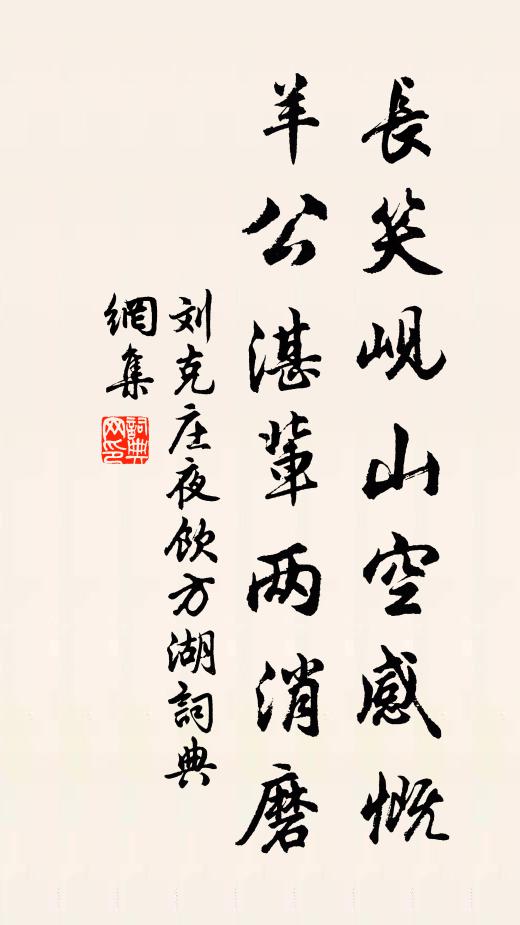 長笑峴山空感慨
羊公湛輩两消磨
刘克庄夜飲方湖詞典
網集
詞典
网印